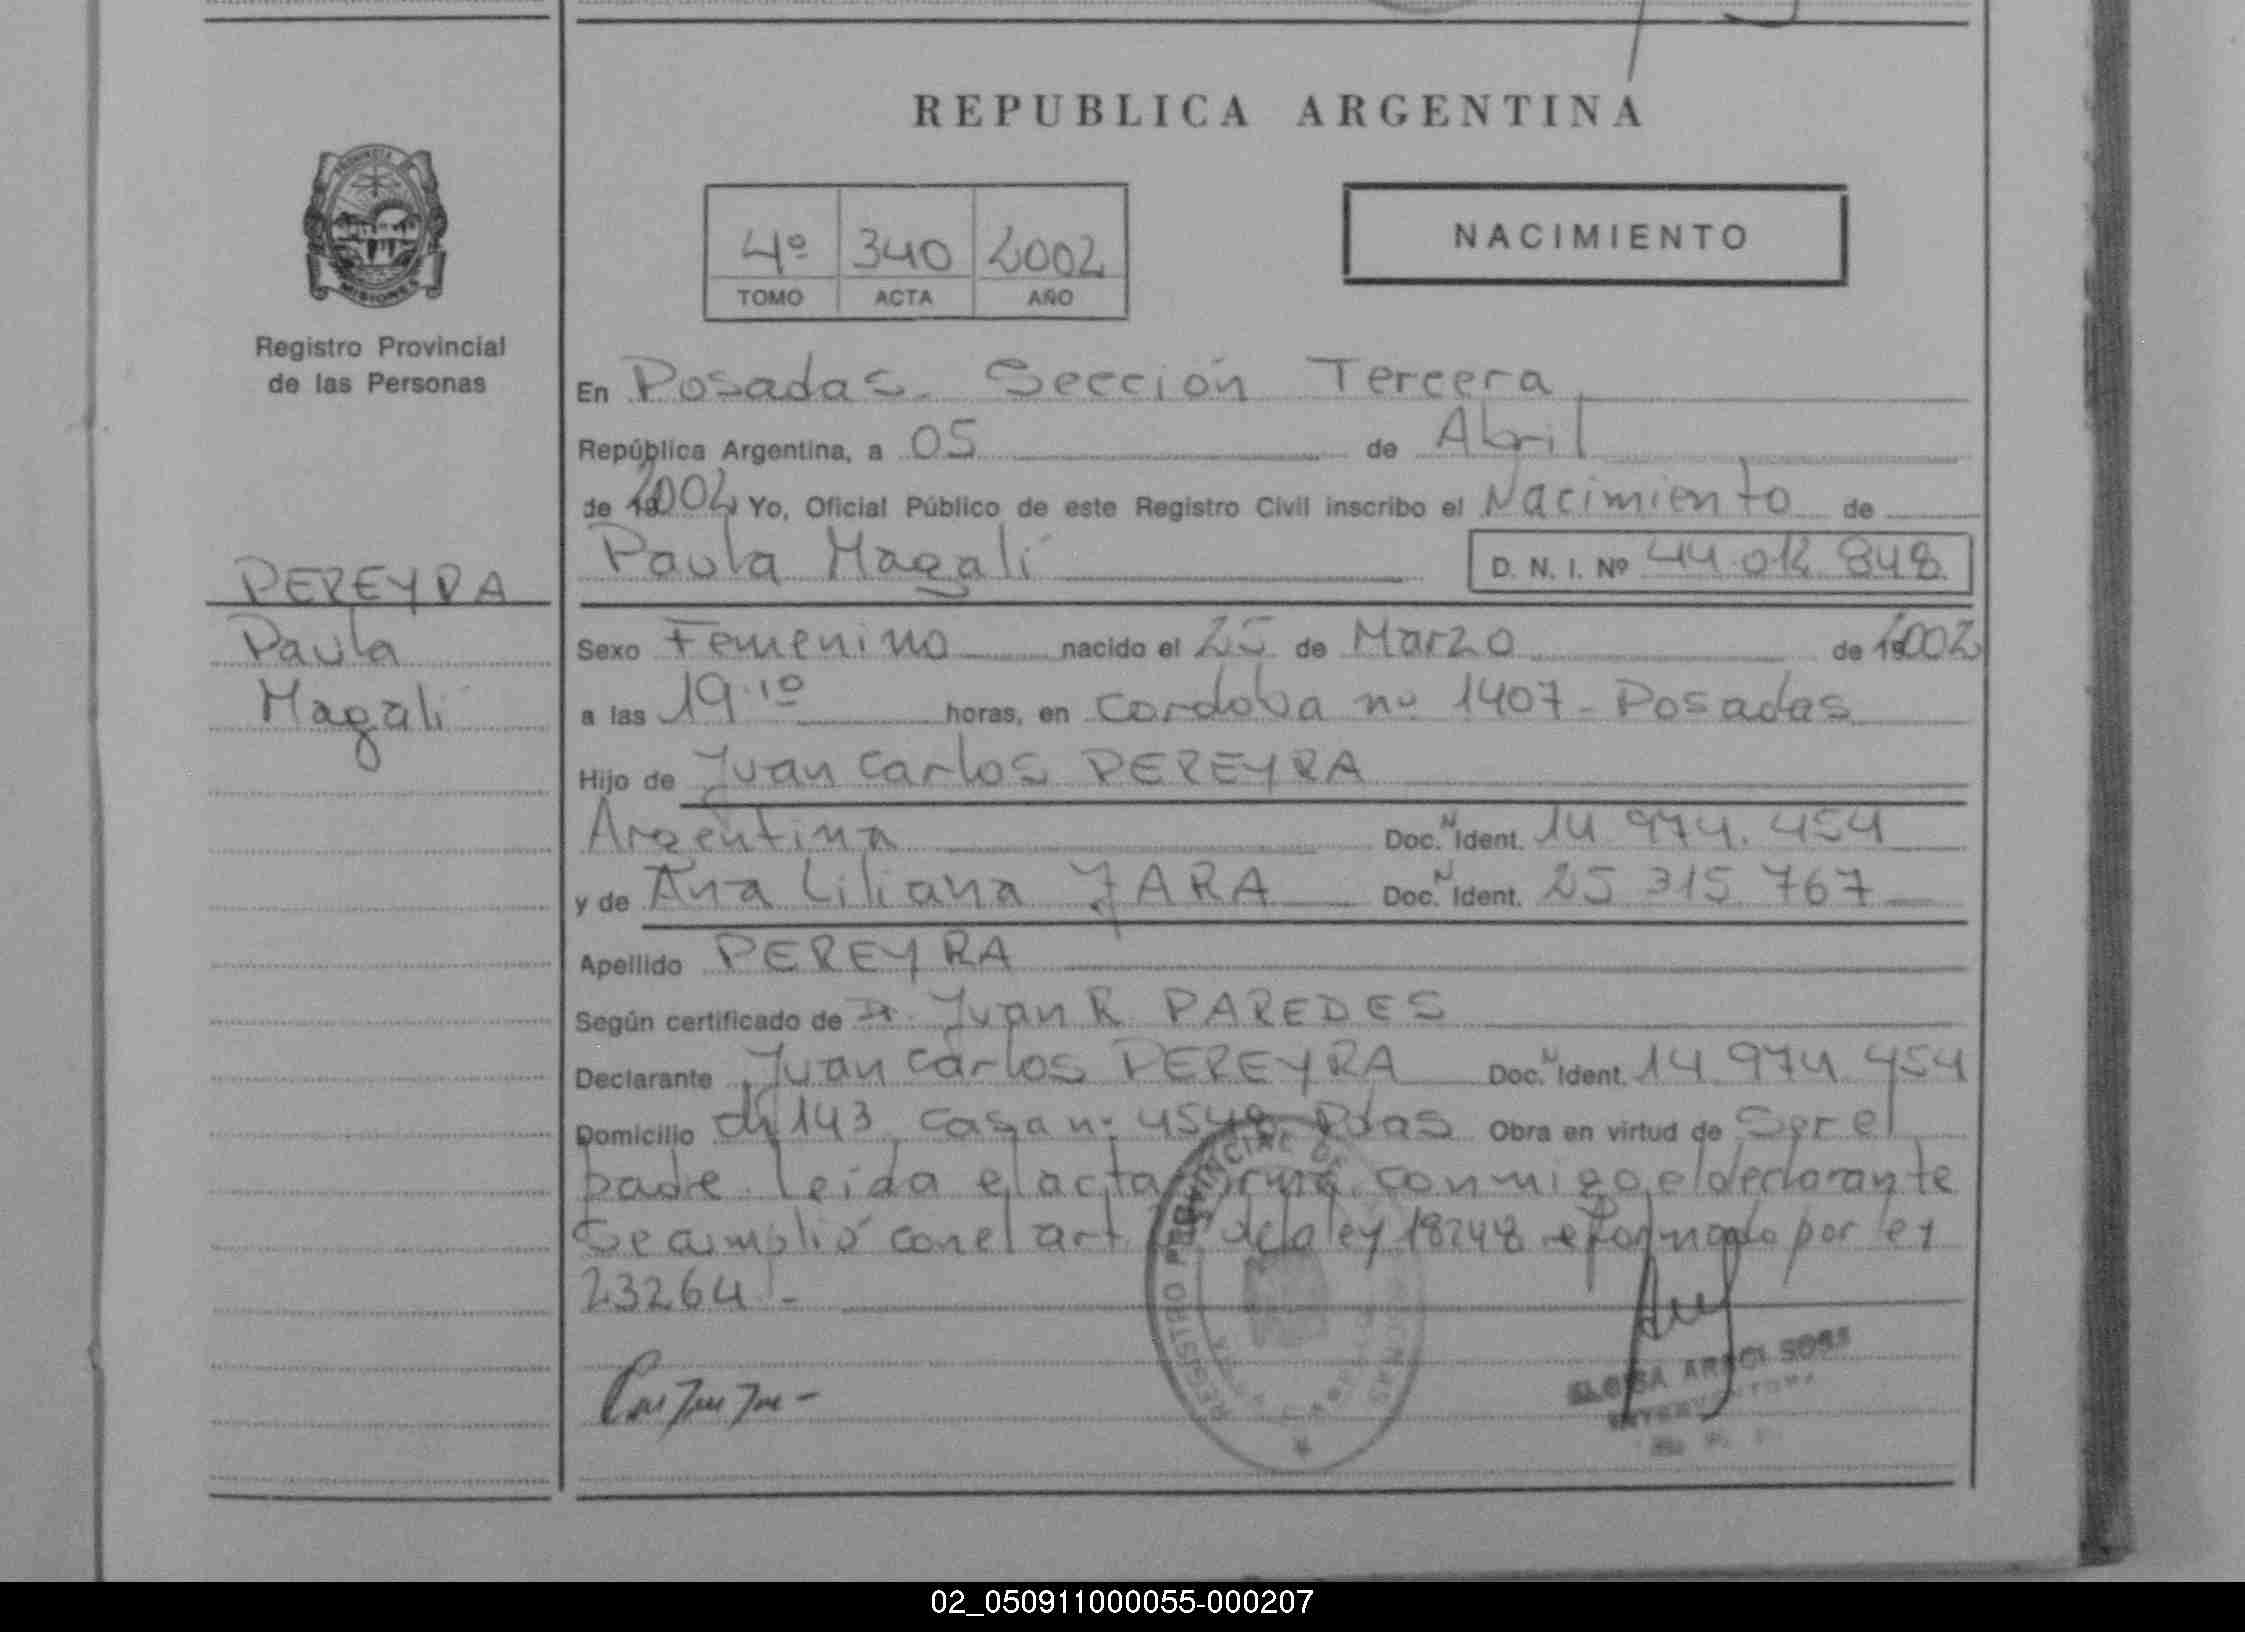 REPUBLICA ARGENTINA
PROVINCIA DE
MISIONES
Registro Provincial
de las Personas
4º 340 2002
TOMO ACTA AÑO
NACIMIENTO
En Posadas. Sección Tercera
República Argentina, a 05 de Abril
de 2002 Yo, Oficial Público de este Registro Civil inscribo el Nacimiento de
Paula Magalí D. N. I. Nº 44.012.848
PEREYRA
Paula
Magalí
Sexo Femenino nacido el 25 de Marzo de 2002
a las 19.10 horas, en Cordoba nº 1407 - Posadas
Hijo de Juan Carlos PEREYRA
Argentina Doc. N Ident. 14.974.454
y de Ana Liliana JARA Doc. N Ident. 25 315 767
Apellido PEREYRA
Según certificado de Dr. Juan R PAREDES
Declarante Juan Carlos PEREYRA Doc. N Ident. 14.974.454
Domicilio ch 143, casa nº 4548 Pdas Obra en virtud de Ser el
padre. Leida el acta firma conmigo el declarante
Se cumplió con el art de la ley 18248 reformado por ley
23264.-
REGISTRO PROVINCIAL DE
INTERVENTORA
02_050911000055-000207